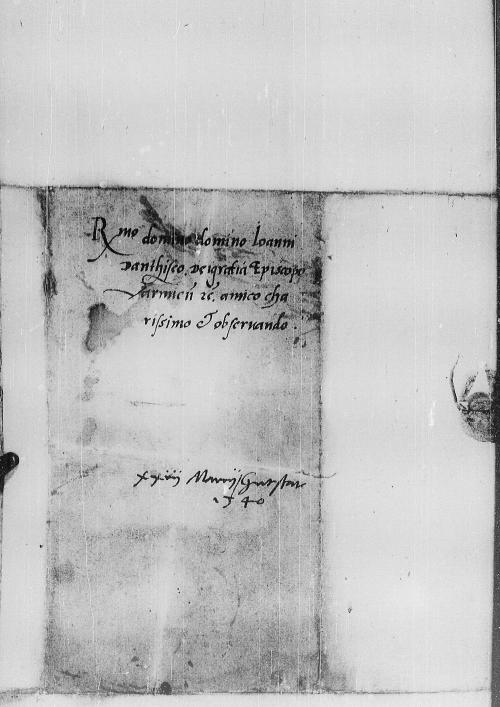 Rmo domino domino Ioanni
Danthisco, Dei gratia Episcopo
Varmieñ ꝛc. amico cha
rissimo & obseruando.
Marcij
1540